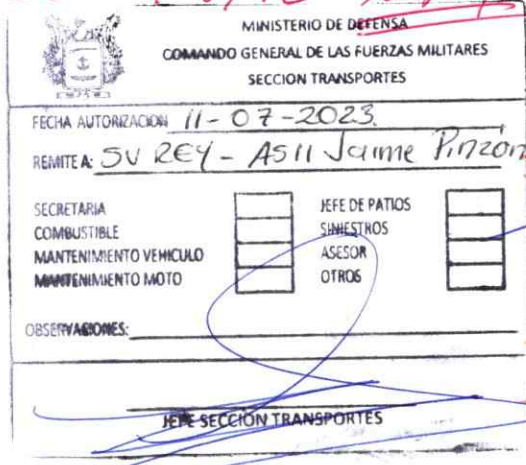 MINISTERIO DE DEFENSA
COMANDO GENERAL DE LAS FUERZAS MILITARES
SECCION TRANSPORTES
FECHA AUTORIZACION 11-07-2023.
REMITE A: SV REY - AS11 Jaime Pinzón
SECRETARIA
COMBUSTIBLE
MANTENIMIENTO VEHICULO
MANTENIMIENTO MOTO
JEFE DE PATIOS
SINIESTROS
ASESOR
OTROS
OBSERVACIONES:
JEFE SECCIÓN TRANSPORTES